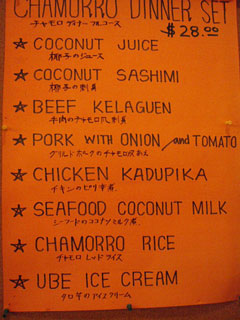 CHAMORRO DINNER SET
チャモロ ディナー フルコース
$28.00
★ COCONUT JUICE
椰子のジュース
★ COCONUT SASHIMI
椰子の刺身
★ BEEF KELAGUEN
牛肉のチャモロ風刺身
★ PORK WITH ONION and TOMATO
グリルドポークのチャモロ
★ CHICKEN KADUPIKA
チキンのピリ辛煮
★ SEAFOOD COCONUT MILK
シーフードのココナツミルク煮
★ CHAMORRO RICE
チャモロ レッド ライス
★ UBE ICE CREAM
タロ芋のアイスクリーム